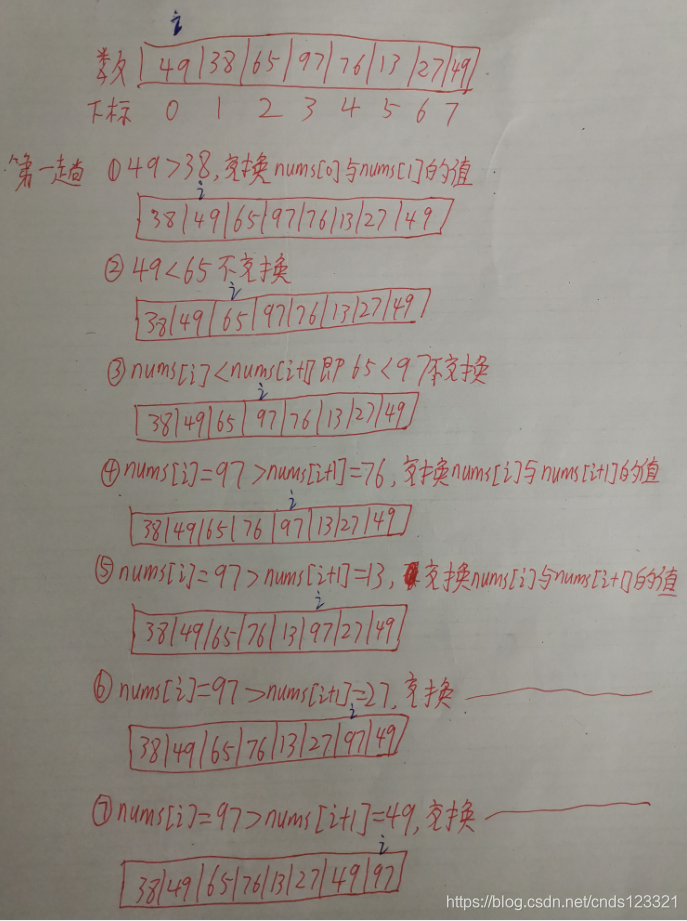 i
数 49 38 65 97 76 13 27 49
下标 0 1 2 3 4 5 6 7
第一趟 ①49>38,交换nums[0]与nums[1]的值
i
38 49 65 97 76 13 27 49
②49<65不交换
i
38 49 65 97 76 13 27 49
③nums[i]<nums[i+1]即65<97不交换
i
38 49 65 97 76 13 27 49
④nums[i]=97>nums[i+1]=76,交换nums[i]与nums[i+1]的值
i
38 49 65 76 97 13 27 49
⑤nums[i]=97>nums[i+1]=13,交换nums[i]与nums[i+1]的值
i
38 49 65 76 13 97 27 49
⑥nums[i]=97>nums[i+1]=27,交换
i
38 49 65 76 13 27 97 49
⑦nums[i]=97>nums[i+1]=49,交换
i
38 49 65 76 13 27 49 97
https://blog.csdn.net/cnds123321